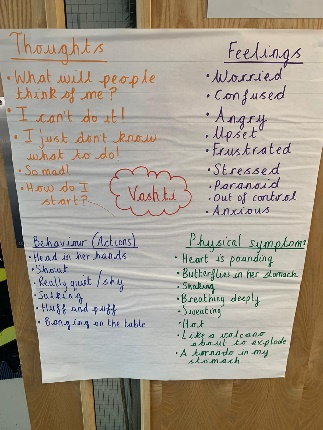 Thoughts
• What will people
think of me?
• I can't do it!
• I just dont know
what to do!
• So mad!
• How do I
start?
Feelings
• Worried
• Confused
• Angry
• Upset
• Frustrated
• Stressed
• Paranoid
• Out of control
• Anxious
Vashti
Behaviour (Actions)
• Head in her hands
• Shout
• Really quit / shy
• Sulking
• Huff and puff
• Banging on the table
Physical symptoms
• Heart is pounding
• Butterflies in her stomach
• Shaking
• Breathing deeply
• Sweating
• Hot
• Like a volcano
about to explode
• A tornado in my
stomach